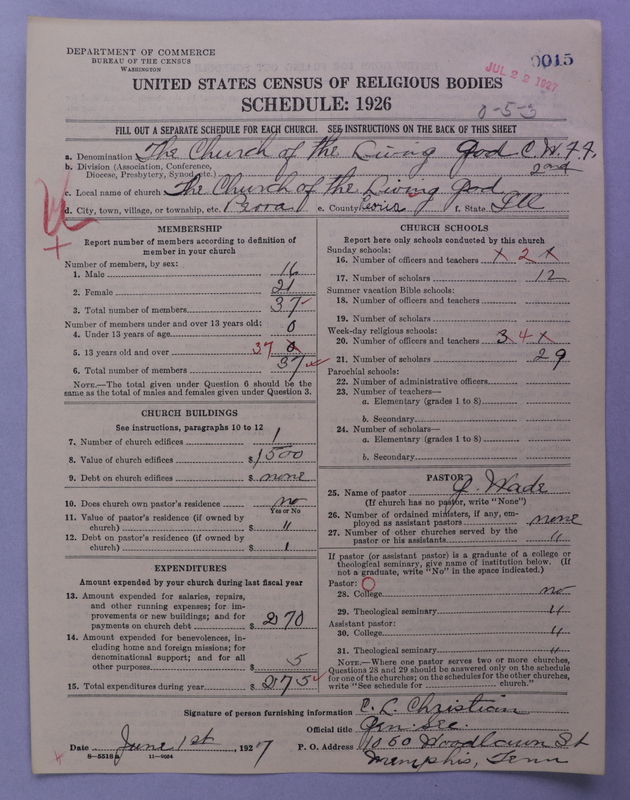 DEPARTMENT OF COMMERCE
BUREAU OF THE CENSUS
WASHINGTON
0015
JUL 22 1927
UNITED STATES CENSUS OF RELIGIOUS BODIES
SCHEDULE: 1926
0-5-3
FILL OUT A SEPARATE SCHEDULE FOR EACH CHURCH. SEE INSTRUCTIONS ON THE BACK OF THIS SHEET
a. Denomination The Church of the Living God C.W.F.F.
b. Division (Association, Conference, Diocese, Presbytery, Synod, etc.) 2nd
c. Local name of church The Church of the Living God
d. City, town, village, or township, etc. Peora e. County Peoria f. State Ill
MEMBERSHIP
Report number of members according to definition of member in your church
Number of members, by sex:
1. Male 16
2. Female 21
3. Total number of members 37
Number of members under and over 13 years old:
4. Under 13 years of age 0
5. 13 years old and over 37 0
6. Total number of members 37
NOTE.—The total given under Question 6 should be the same as the total of males and females given under Question 3.
CHURCH BUILDINGS
See instructions, paragraphs 10 to 12
7. Number of church edifices 1
8. Value of church edifices $ 1500
9. Debt on church edifices $ none
10. Does church own pastor's residence? no
Yes or No
11. Value of pastor's residence (if owned by church) $ "
12. Debt on pastor's residence (if owned by church) $
EXPENDITURES
Amount expended by your church during last fiscal year
13. Amount expended for salaries, repairs, and other running expenses; for improvements or new buildings; and for payments on church debt $ 270
14. Amount expended for benevolences, including home and foreign missions; for denominational support; and for all other purposes $ 5
15. Total expenditures during year $ 275
CHURCH SCHOOLS
Report here only schools conducted by this church
Sunday schools:
16. Number of officers and teachers x 2 x
17. Number of scholars 12
Summer vacation Bible schools:
18. Number of officers and teachers
19. Number of scholars
Week-day religious schools:
20. Number of officers and teachers 3 4 x
21. Number of scholars 29
Parochial schools:
22. Number of administrative officers
23. Number of teachers—
a. Elementary (grades 1 to 8)
b. Secondary
24. Number of scholars—
a. Elementary (grades 1 to 8)
b. Secondary
PASTOR
25. Name of pastor Wade
(If church has no pastor, write "None")
26. Number of ordained ministers, if any, employed as assistant pastors none
27. Number of other churches served by the pastor or his assistants "
If pastor (or assistant pastor) is a graduate of a college or theological seminary, give name of institution below. (If not a graduate, write "No" in the space indicated.)
Pastor:
28. College no
29. Theological seminary "
Assistant pastor:
30. College "
31. Theological seminary "
NOTE.—Where one pastor serves two or more churches, Questions 28 and 29 should be answered only on the schedule for one of the churches; on the schedules for the other churches, write "See schedule for church."
Signature of person furnishing information E. L. Christian
Official title Gen. Sec.
Date June 1st, 1927 P. O. Address 1060 Woodlawn St
Memphis, Tenn
8-5516a 11-9054